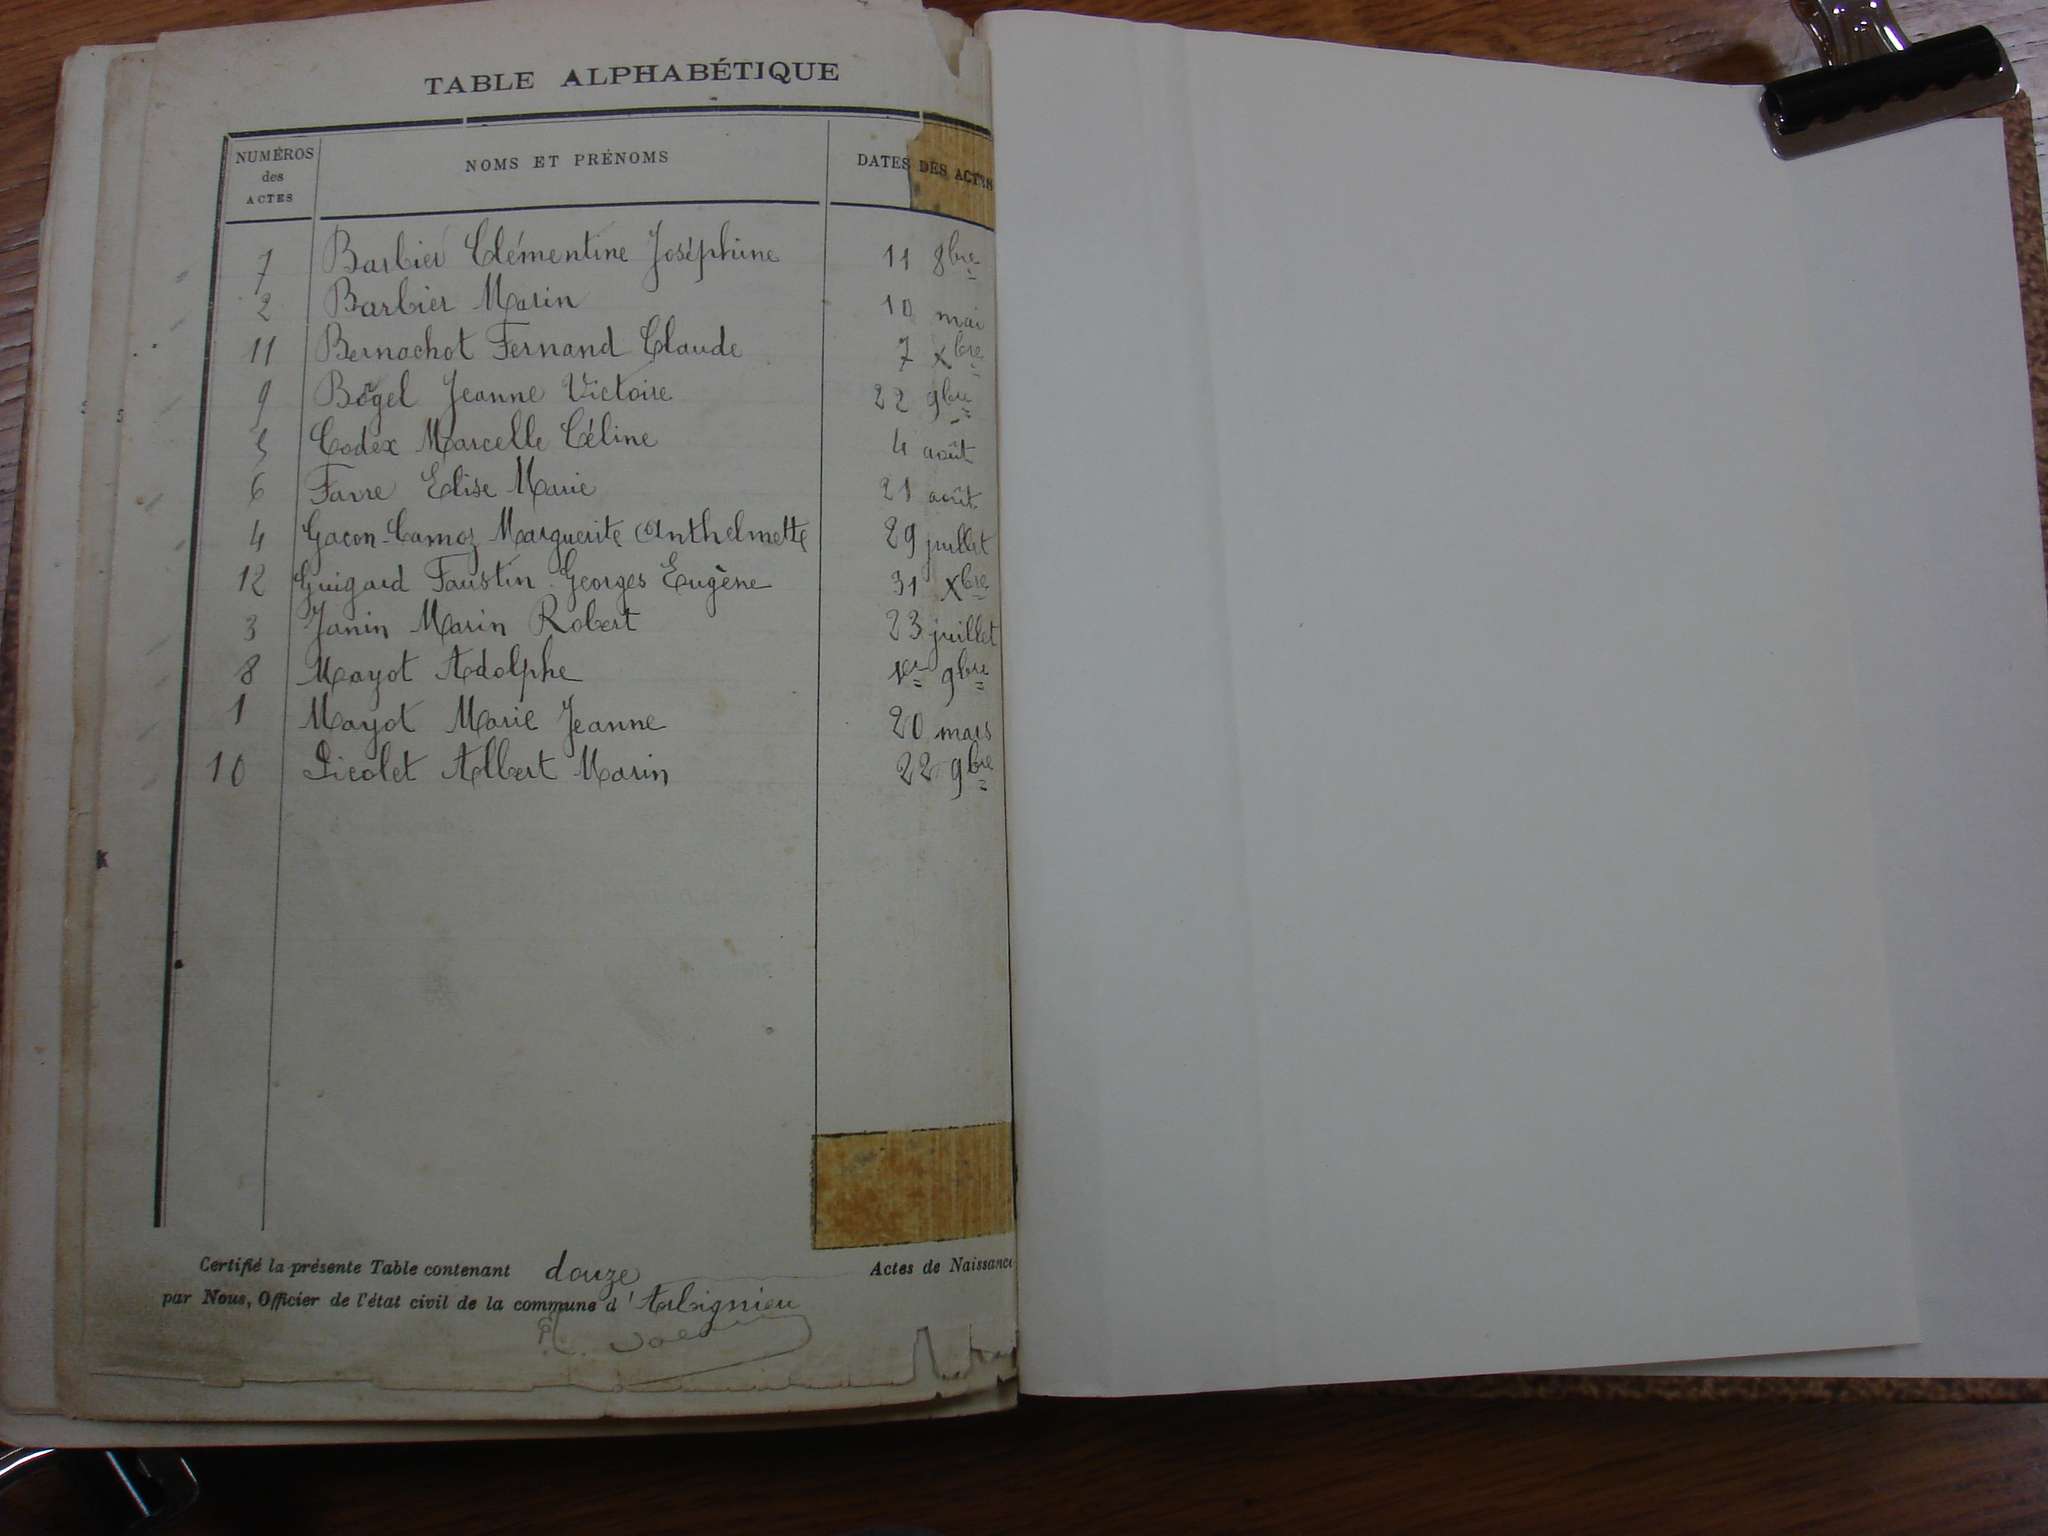 TABLE ALPHABÉTIQUE
NUMÉROS des ACTES NOMS ET PRÉNOMS DATES DES ACTES
7 Barbier Clémentine Joséphine 11 8bre
2 Barbier Marin 10 mai
11 Bernachot Fernand Claude 7 Xbre
9 Bogel Jeanne Victoire 22 9bre
5 Codex Marcelle Céline 4 août
6 Favre Elise Marie 21 août
4 Gacon-Camoz Marguerite Anthelmette 29 juillet
12 Guigard Faustin Georges Eugène 31 Xbre
3 Janin Marin Robert 23 juillet
8 Mayot Adolphe 1er 9bre
1 Mayot Marie Jeanne 20 mars
10 Picolet Albert Marin 22 9bre
Certifié la présente Table contenant douze Actes de Naissance
par Nous, Officier de l'état civil de la commune d'Arbignieu